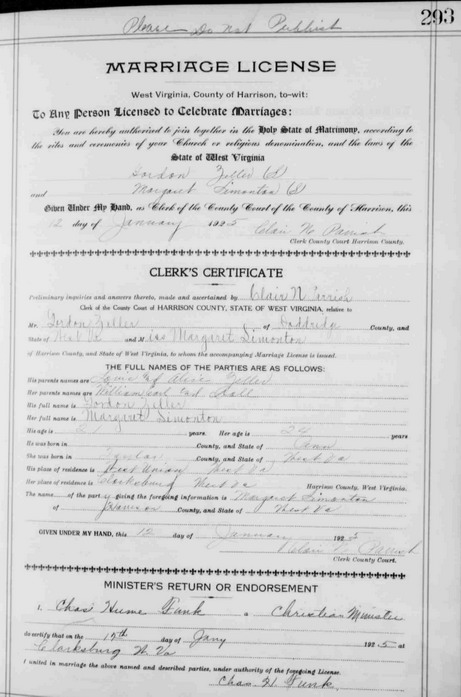 293
Please Do Not Publish
MARRIAGE LICENSE
West Virginia, County of Harrison, to-wit:
To Any Person Licensed to Celebrate Marriages:
You are hereby authorized to join together in the Holy State of Matrimony, according to
the rites and ceremonies of your Church or religious denomination, and the laws of the
State of West Virginia
Gordon Zeller
and Margaret Simonton
Given Under My Hand, as Clerk of the County Court of the County of Harrison, this
12 day of January 1925 Clair N. Parrish
Clerk County Court Harrison County.
CLERK'S CERTIFICATE
Preliminary inquiries and answers thereto, made and ascertained by Clair N Parrish
Clerk of the County Court of HARRISON COUNTY, STATE OF WEST VIRGINIA, relative to
Mr. Gordon Zeller of Doddridge County, and
State of West Va and Miss Margaret Simonton
of Harrison County, and State of West Virginia, to whom the accompanying Marriage License is issued.
THE FULL NAMES OF THE PARTIES ARE AS FOLLOWS:
His parents names are Alice Zeller
Her parents names are William
His full name is Gordon Zeller
Her full name is Margaret Simonton
His age is 21 years. Her age is 24 years
He was born in County, and State of Penn
She was born in Taylor County, and State of West Va
His place of residence is West Union West Va
Her place of residence is Clarksburg West Va Harrison County, West Virginia.
The name of the party giving the foregoing information is Margaret Simonton
of Harrison County, and State of West Va
GIVEN UNDER MY HAND, this 12 day of January 1925
Clair N. Parrish
Clerk County Court.
MINISTER'S RETURN OR ENDORSEMENT
I, Chas Hume Funk a Christian Minister
do certify that on the day of Jany 1925 at
Clarksburg W. Va
I united in marriage the above named and described parties, under authority of the foregoing License.
Chas. H. Funk